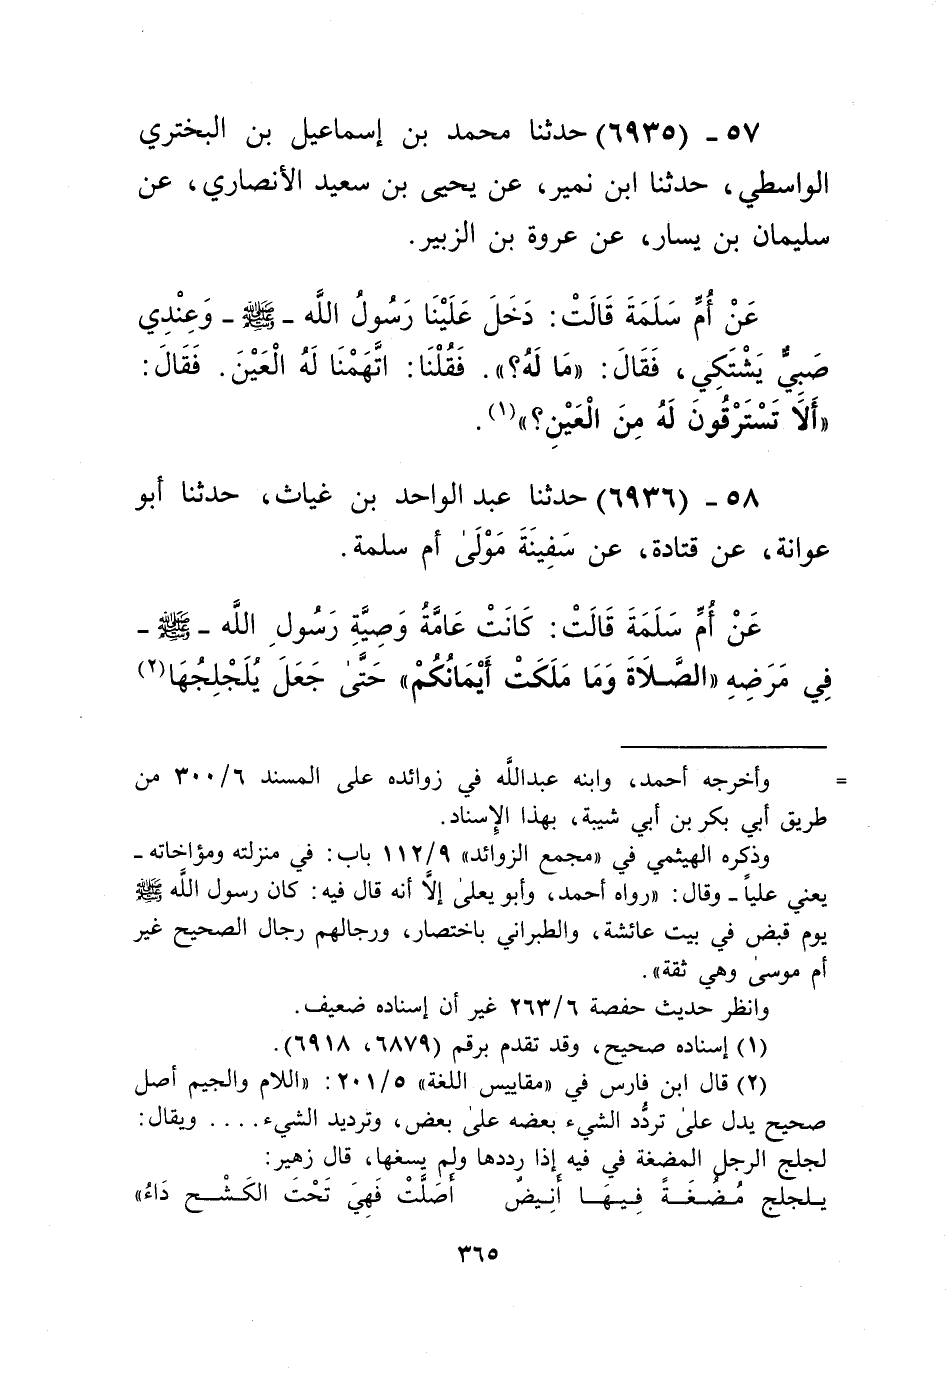 ٥٧ ـ (٦٩٣٥) حدثنا محمد بن إسماعيل بن البختري
الواسطي، حدثنا ابن نمير، عن يحيى بن سعيد الأنصاري، عن
سليمان بن يسار، عن عروة بن الزبير.
عَنْ أُمِّ سَلَمَةَ قَالَتْ: دَخَلَ عَلَيْنَا رَسُولُ اللَّه ـ ﷺ ـ وَعِنْدِي
صَبِيٌّ يَشْتَكِي، فَقَالَ: «مَا لَهُ؟». فَقُلْنَا: اتَّهَمْنَا لَهُ الْعَيْنَ. فَقَالَ:
«أَلَا تَسْتَرْقُونَ لَهُ مِنَ الْعَيْنِ؟»(١).
٥٨ ـ (٦٩٣٦) حدثنا عبد الواحد بن غياث، حدثنا أبو
عوانة، عن قتادة، عن سَفِينَةَ مَوْلَىٰ أم سلمة.
عَنْ أُمِّ سَلَمَةَ قَالَتْ: كَانَتْ عَامَّةُ وَصِيَّةِ رَسُولِ اللَّه ـ ﷺ ـ
فِي مَرَضِهِ «الصَّلَاةَ وَمَا مَلَكَتْ أَيْمَانُكُمْ» حَتَّىٰ جَعَلَ يُلَجْلِجُهَا(٢)
= وأخرجه أحمد، وابنه عبداللَّه في زوائده على المسند ٣٠٠/٦ من
طريق أبي بكر بن أبي شيبة، بهذا الإِسناد.
وذكره الهيثمي في «مجمع الزوائد» ١١٢/٩ باب: في منزلته ومؤاخاته ـ
يعني علياً ـ وقال: «رواه أحمد، وأبو يعلىٰ إلَّا أنه قال فيه: كان رسول اللَّه ﷺ
يوم قبض في بيت عائشة، والطبراني باختصار، ورجالهم رجال الصحيح غير
أم موسىٰ وهي ثقة».
وانظر حديث حفصة ٢٦٣/٦ غير أن إسناده ضعيف.
(١) إسناده صحيح، وقد تقدم برقم (٦٨٧٩، ٦٩١٨).
(٢) قال ابن فارس في «مقاييس اللغة» ٢٠١/٥: «اللام والجيم أصل
صحيح يدل علىٰ تردُّد الشيء بعضه علىٰ بعض، وترديد الشيء.... ويقال:
لجلج الرجل المضغة في فيه إذا رددها ولم يسغها، قال زهير:
يلجلج مُضْغَةً فِيهَا أَنِيضٌ أَصَلَّتْ فَهِيَ تَحْتَ الكَشْحِ دَاءُ»
٣٦٥